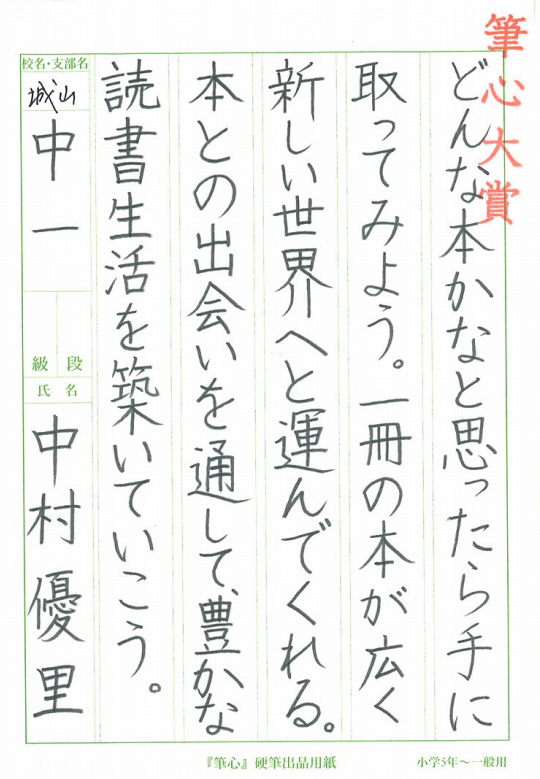 筆心大賞
どんな本かなと思ったら手に
取ってみよう。一冊の本が広く
新しい世界へと運んでくれる。
本との出会いを通して、豊かな
読書生活を築いていこう。
校名・支部名
城山
中一
級 段
氏名
中村優里
『筆心』硬筆出品用紙
小学5年〜一般用